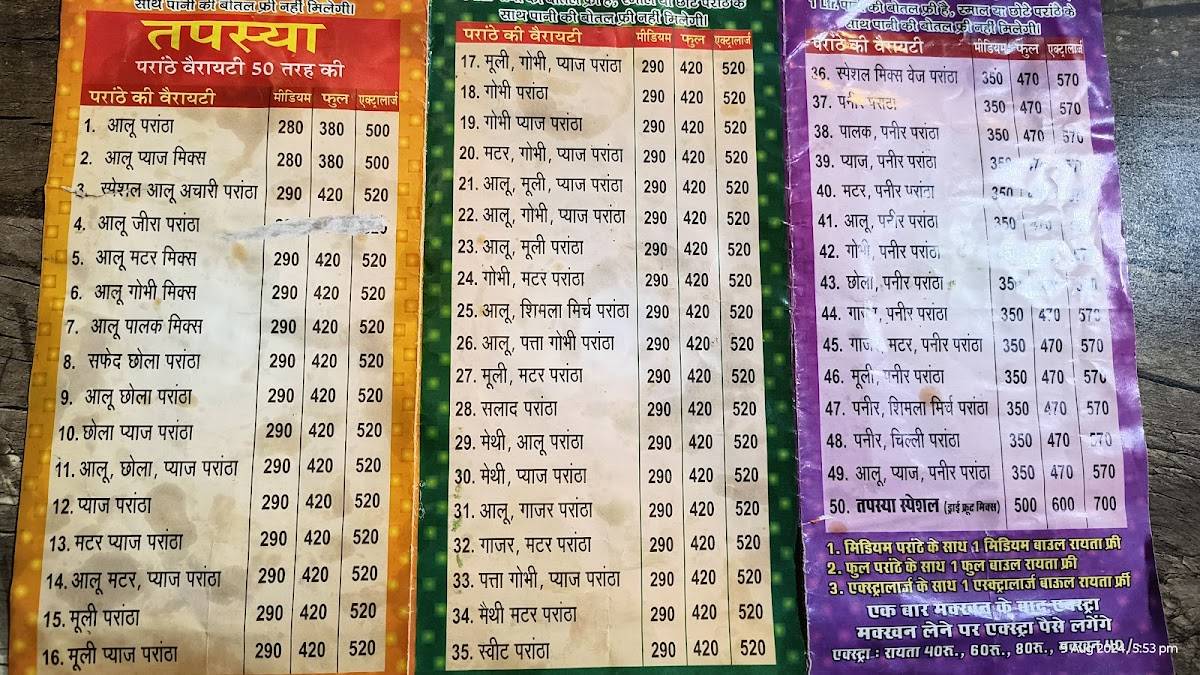 साथ पानी की बोतल फ्री नहीं मिलेगी।
तपस्या
परांठे वैरायटी 50 तरह की
परांठे की वैरायटी मीडियम फुल एक्ट्रालार्ज
1. आलू परांठा 280 380 500
2. आलू प्याज मिक्स 280 380 500
3. स्पेशल आलू अचारी परांठा 290 420 520
4. आलू जीरा परांठा
5. आलू मटर मिक्स 290 420 520
6. आलू गोभी मिक्स 290 420 520
7. आलू पालक मिक्स 290 420 520
8. सफेद छोला परांठा 290 420 520
9. आलू छोला परांठा 290 420 520
10. छोला प्याज परांठा 290 420 520
11. आलू, छोला, प्याज परांठा 290 420 520
12. प्याज परांठा 290 420 520
13. मटर प्याज परांठा 290 420 520
14. आलू मटर, प्याज परांठा 290 420 520
15. मूली परांठा 290 420 520
16. मूली प्याज परांठा 290 420 520
साथ पानी की बोतल फ्री नहीं मिलेगी।
परांठे की वैरायटी मीडियम फुल एक्ट्रालार्ज
17. मूली, गोभी, प्याज परांठा 290 420 520
18. गोभी परांठा 290 420 520
19. गोभी प्याज परांठा 290 420 520
20. मटर, गोभी, प्याज परांठा 290 420 520
21. आलू, मूली, प्याज परांठा 290 420 520
22. आलू, गोभी, प्याज परांठा 290 420 520
23. आलू, मूली परांठा 290 420 520
24. गोभी, मटर परांठा 290 420 520
25. आलू, शिमला मिर्च परांठा 290 420 520
26. आलू, पत्ता गोभी परांठा 290 420 520
27. मूली, मटर परांठा 290 420 520
28. सलाद परांठा 290 420 520
29. मेथी, आलू परांठा 290 420 520
30. मेथी, प्याज परांठा 290 420 520
31. आलू, गाजर परांठा 290 420 520
32. गाजर, मटर परांठा 290 420 520
33. पत्ता गोभी, प्याज परांठा 290 420 520
34. मेथी मटर परांठा 290 420 520
35. स्वीट परांठा 290 420 520
1 लि. पानी की बोतल फ्री है, स्माल या छोटे परांठे के
साथ पानी की बोतल फ्री नहीं मिलेगी।
परांठे की वैरायटी मीडियम फुल एक्ट्रालार्ज
36. स्पेशल मिक्स वेज परांठा 350 470 570
37. पनीर परांठा 350 470 570
38. पालक, पनीर परांठा 350 470 570
39. प्याज, पनीर परांठा
40. मटर, पनीर परांठा 350
41. आलू, पनीर परांठा 350
42. गोभी, पनीर परांठा
43. छोला, पनीर परांठा
44. गाजर, पनीर परांठा 350 470 570
45. गाजर, मटर, पनीर परांठा 350 470 570
46. मूली, पनीर परांठा 350 470 570
47. पनीर, शिमला मिर्च परांठा 350 470 570
48. पनीर, चिल्ली परांठा 350 470 570
49. आलू, प्याज, पनीर परांठा 350 470 570
50. तपस्या स्पेशल (ड्राई फ्रूट मिक्स) 500 600 700
1. मिडियम परांठे के साथ 1 मिडियम बाउल रायता फ्री
2. फुल परांठे के साथ 1 फुल बाउल रायता फ्री
3. एक्स्ट्रालार्ज के साथ 1 एस्क्ट्रालार्ज बाऊल रायता फ्री
एक बार मक्खन के बाद एक्स्ट्रा
मक्खन लेने पर एक्स्ट्रा पैसे लगेंगे
एक्स्ट्रा : रायता 40रू., 60रू., 80रू., मक्खन
9 Aug 2024/5:53 pm